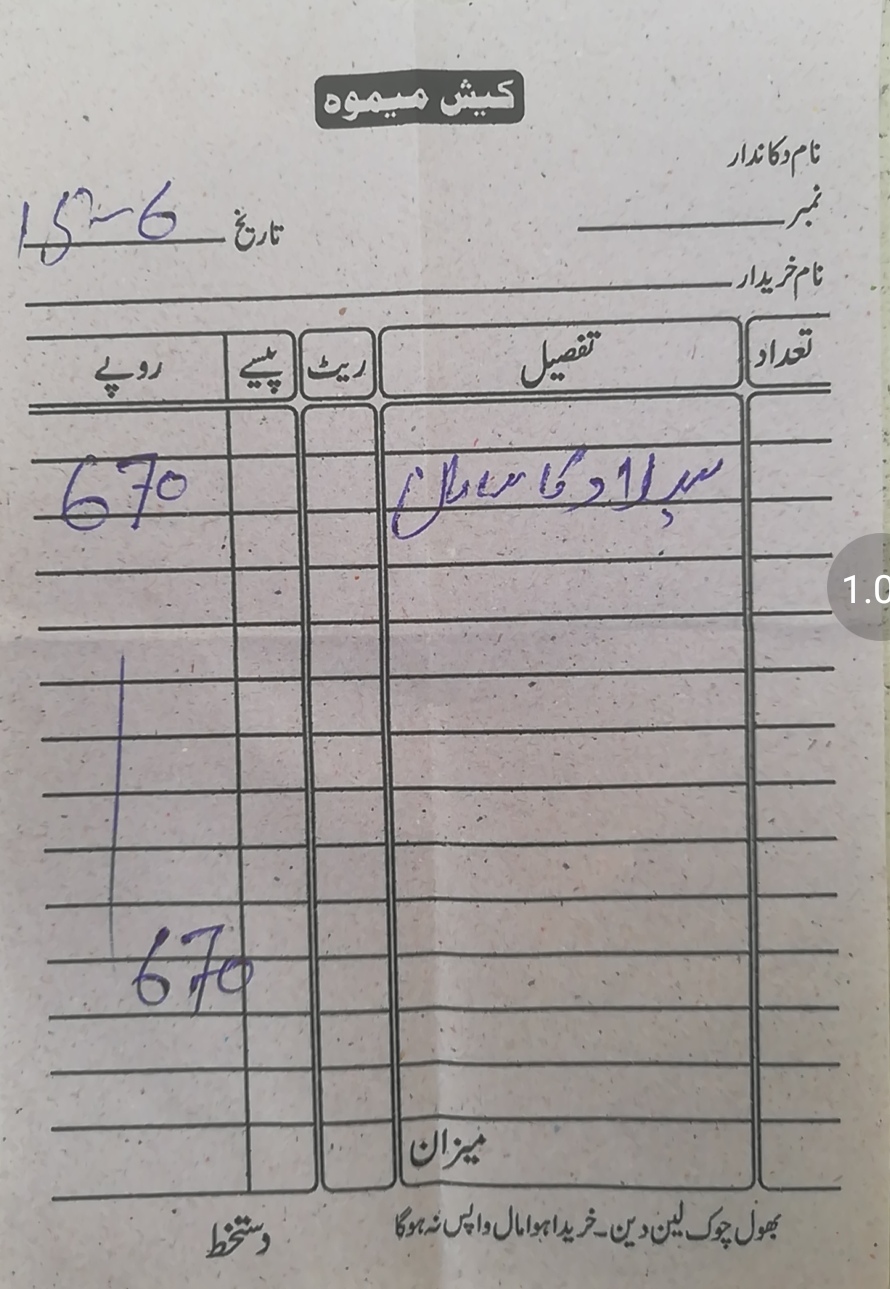 کیش میموہ
نام دکاندار
نمبر تاریخ 15-6
نام خریدار
تعداد تفصیل ریٹ پیسے روپے
سلاد کا سامان 670
670
میزان
بھول چوک لین دین۔ خریدا ہوا مال واپس نہ ہوگا
دستخط
1.0